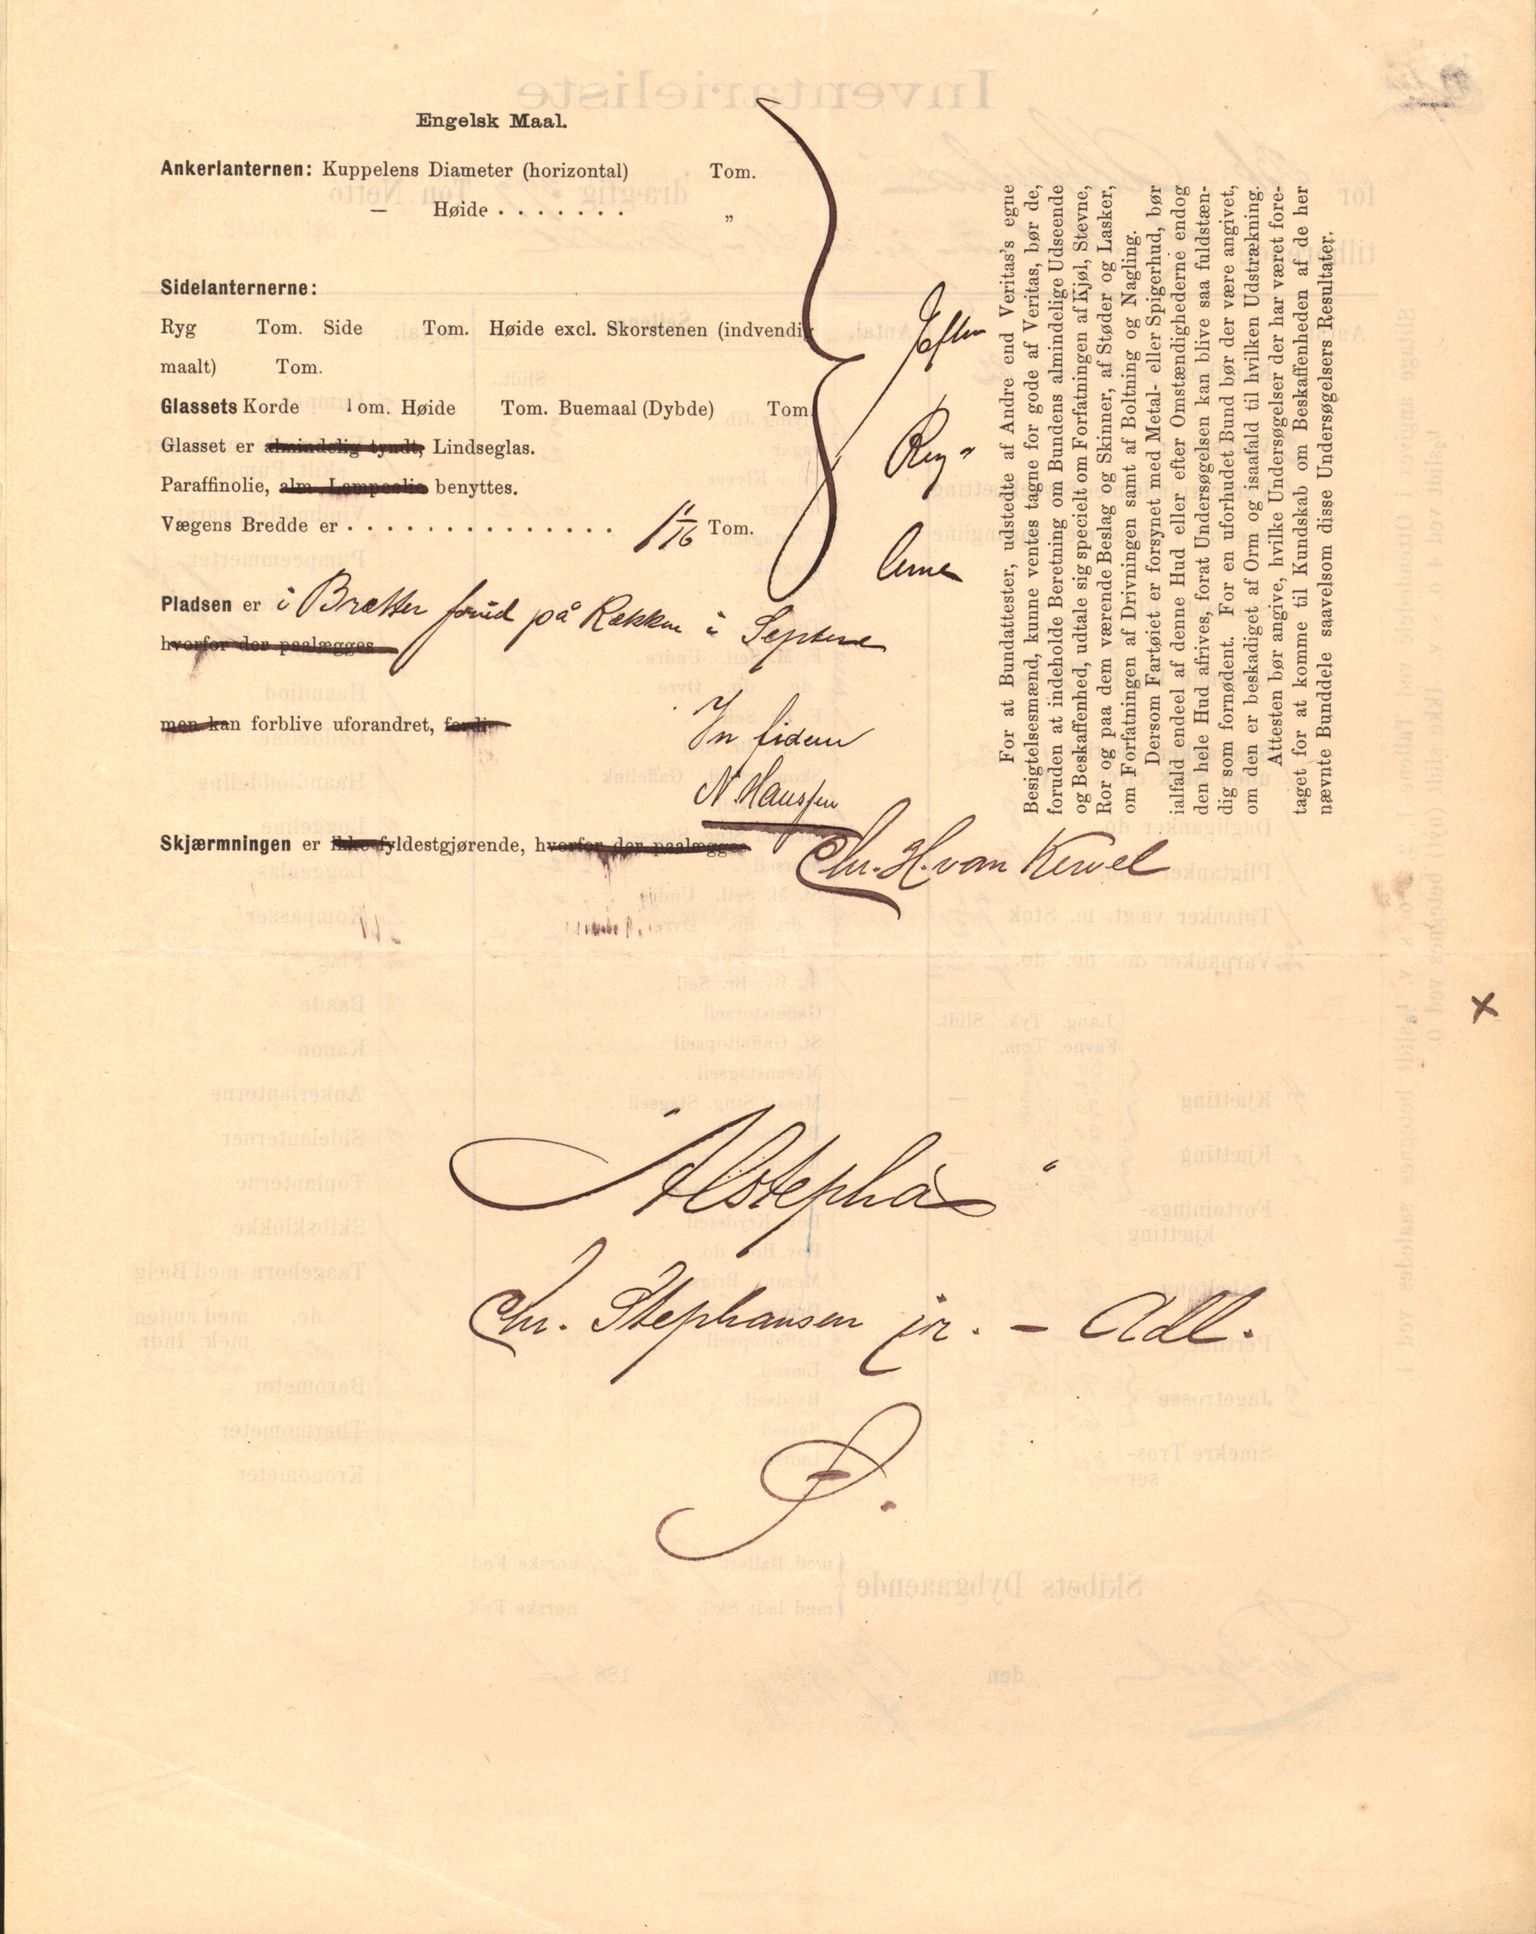 Engelsk Maal.
Ankerlanternen: Kuppelens Diameter (horizontal) Tom.
— Høide . . . . . . . „
Sidelanternerne:
Ryg Tom. Side Tom. Høide excl. Skorstenen (indvendig
maalt) Tom.
Glassets Korde Tom. Høide Tom. Buemaal (Dybde) Tom.
Glasset er almindelig tyndt, Lindseglas.
Paraffinolie, alm. Lampeolie benyttes.
Vægens Bredde er . . . . . . . . . . . . . . . 11/16 Tom.
Jefter
Reg-
lerne
Pladsen er i Brætter forud på Rækken i
hvorfor der paalægges
men kan forblive uforandret, fordi
In fidem
N. Hanssen
Skjærmningen er ikke fyldestgjørende, hvorfor der paalægges
Chr. H. van Kervel
For at Bundattester, udstedte af Andre end Veritas's egne
Besigtelsesmænd, kunne ventes tagne for gode af Veritas, bør de,
foruden at indeholde Beretning om Bundens almindelige Udseende
og Beskaffenhed, udtale sig specielt om Forfatningen af Kjøl, Stevne,
Ror og paa dem værende Beslag og Skinner, af Støder og Lasker,
om Forfatningen af Drivningen samt af Boltning og Nagling.
Dersom Fartøiet er forsynet med Metal- eller Spigerhud, bør
ialfald endeel af denne Hud eller efter Omstændighederne endog
den hele Hud afrives, forat Undersøgelsen kan blive saa fuldstæn-
dig som fornødent. For en uforhudet Bund bør der være angivet,
om den er beskadiget af Orm og isaafald til hvilken Udstrækning.
Attesten bør angive, hvilke Undersøgelser der har været fore-
taget for at komme til Kundskab om Beskaffenheden af de her
nævnte Bunddele saavelsom disse Undersøgelsers Resultater.
x
"Alstephàs"
Chr. Stephansen jr. – Adl.
P.